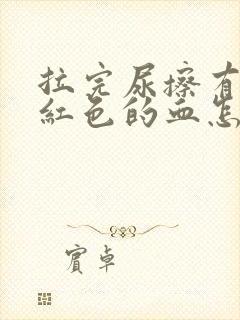 拉完尿擦有
紅色的血怎
賓卓